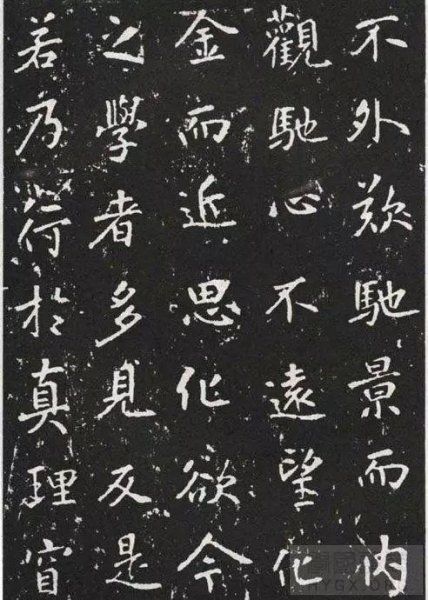 不外歎馳景而內
觀馳心不遠望化
金而近思化欲今
之學者多見反是
若乃符於真理窅